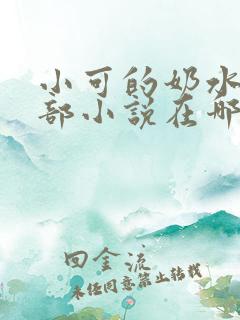 小可的奶水
部小说在哪
回金流
未经同意禁止转载